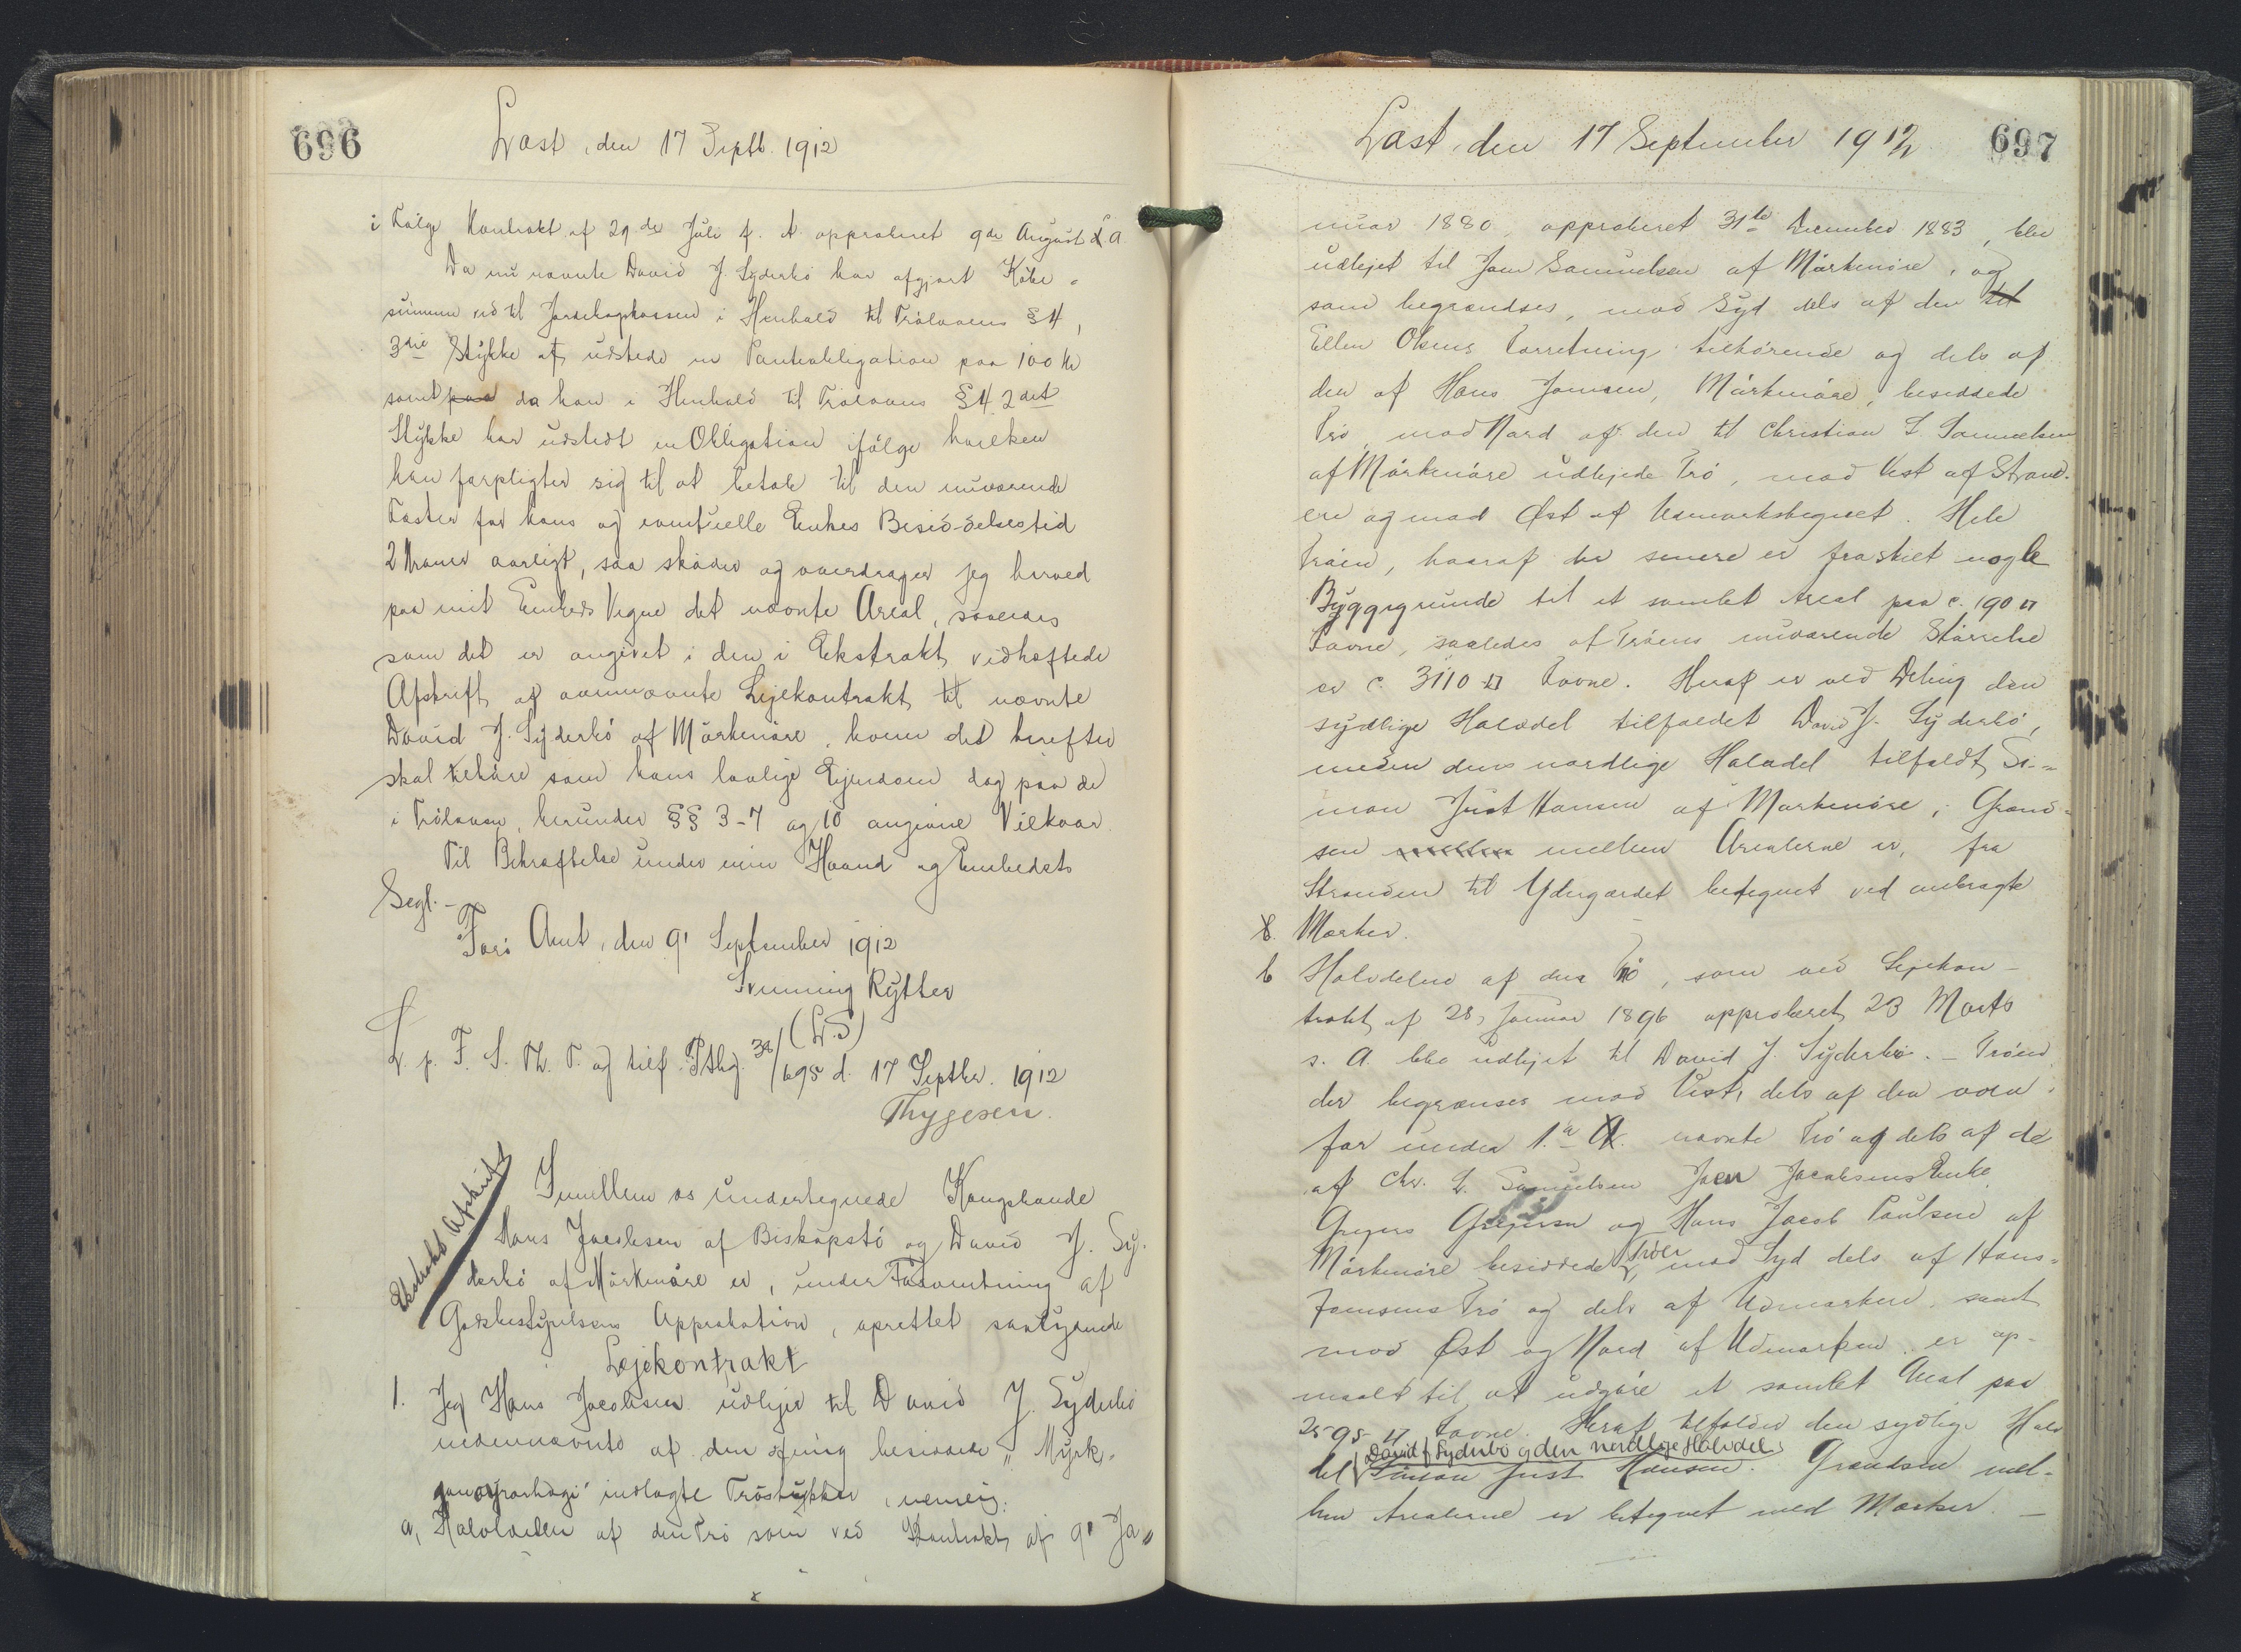 696
Læst, den 17 Septb. 1912
i Følge Kontrakt af 29de Juli f. A. approberet 9de August s. A
Da nu nævnte David J. Syderbö har afgjort Købe-
summen ved til Jordebogskassen i Henhold til Trölovens § 4,
3die Stykke at udstede en Panteobligation paa 100 Kr
samt paa da han i Henhold til Trölovens § 4 2det
Stykke har udstedt en Obligation ifølge hvilken
han forpligter sig til at betale til den nuværende
Fæster for hans og eventuelle Enkes Besiddelsestid
2 Kroner aarligt, saa skøder og overdrager jeg herved
paa mit Embeds Vegne det nævnte Areal, saaledes
som det er angivet i den i Ekstrakt vedhæftede
Afskrift af ovennævnte Lejekontrakt til nævnte
David J. Syderbö af Mörkenöre, hvem det herefter
skal tilhøre som hans lovlige Ejendom dog paa de
i Tröloven, herunder §§ 3-7 og 10 angivne Vilkaar.
Til Bekræftelse under min Haand og Embedets
Segl. -
Färö Amt, den 9' September 1912
Svenning Rytter
(L.S)
L. p. F. S. Th. P. og tilf. Ptbg. 38/695 d. 17 Septbr. 1912
Thygesen.
Ekstrakt Afskrift
Imellem os undertegnede Kongsbonde
Hans Jacobsen af Biskopstö og David J. Sy-
derbö af Mörkenöre er, under Forventning af
Godsbestyrelsens Approbation, oprettet saalydende
Lejekontrakt
1. Jeg Hans Jacobsen udlejer til David J. Syderbö
nedennævnte af den af mig besiddede "Myrk-
indlagte Tröstykker, nemlig:
a, Halvdelen af den Trö som ved Kontrakt af 9' Ja-
Læst, den 17 September 1912
697
nuar 1880, approberet 31te December 1883, blev
udlejet til Joen Samuelsen af Mörkenöre, og
som begrændses, mod Syd dels af den til
Ellen Olsens Forretning tilhørende og dels af
den af Hans Joensen, Mörkenöre, besiddede
Trö, mod Nord af den til Christian L. Samuelsen
af Mörkenöre udlejede Trö, mod Vest af Strand-
en og mod Øst af Udmarkshegnet. Hele
Tröen, hvoraf der senere er fraskilt nogle
Byggegrunde til et samlet Areal paa c. 190 □
Favne, saaledes at Tröens nuværende Størrelse
er c. 3110 □ Favne. Heraf er ved Deling den
sydlige Halvdel tilfaldet David J. Syderbö,
meden dens nordlige Halvdel tilfaldt Si-
mon Just Hansen af Mørkenöre; Grænd-
sen mellem mellem Arealerne er, fra
Stranden til Ydergærdet betegnet ved anbragte
Mærker.
b Halvdelen af den Trö, som ved Lejekon-
trakt af 28, Januar 1896 approberet 23 Marts
s. A. blev udlejet til David J. Syderbö. - Tröen,
der begrænses mod Vest, dels af den oven-
for under 1. a A. nævnte Trö og dels af de
af Chr. L. Samuelsen Joen Jacobsens Enke,
og Hans Jacob Poulsen af
Mörkenöre besiddede Tröer, mod Syd dels af Hans
Joensens Trö og dels af Udmarken, samt
mod Øst og Nord af Udmarken, er op-
maalt til at udgøre et samlet Areal paa
2595 □ Favne. Heraf tilfalder den sydlige Halv
David J Syderbö og den nordlige Halvdel
del Simon Just Hansen. Grændsen mel-
lem Arealerne er betegnet med Mærker. -